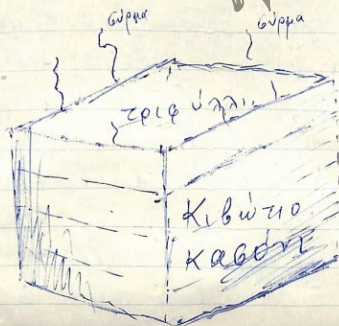 σύρμα σύρμα
τριφύλλι
Κιβώτιο
κασόνι